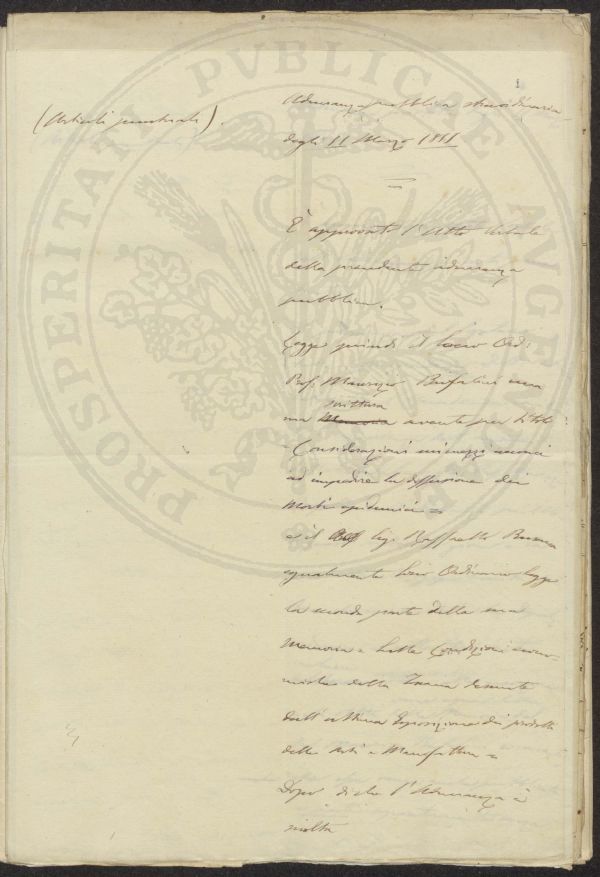 PROSPERITATI PVBLICAE AVGENDAE
(Articoli
Adunanza pubblica straordinaria
degli 11 Marzo
È approvato l'Atto Verbale
della precedente adunanza
pubblica.
Legge quindi il Socio Ord:
Prof. Maurizio Bufalini una
sua scrittura avente per titolo
= Considerazioni sui mezzi
ad impedire la diffusione dei
Morbi epidemici =
e il Sig. Raffaello Busacca
egualmente Socio Ordinario legge
la seconda parte della sua
Memoria = Sulle Condizioni econo-
miche della Toscana desunte
dall'ultima Esposizione dei prodotti
delle Arti e Manifatture =
Dopo di che l'Adunanza è
sciolta